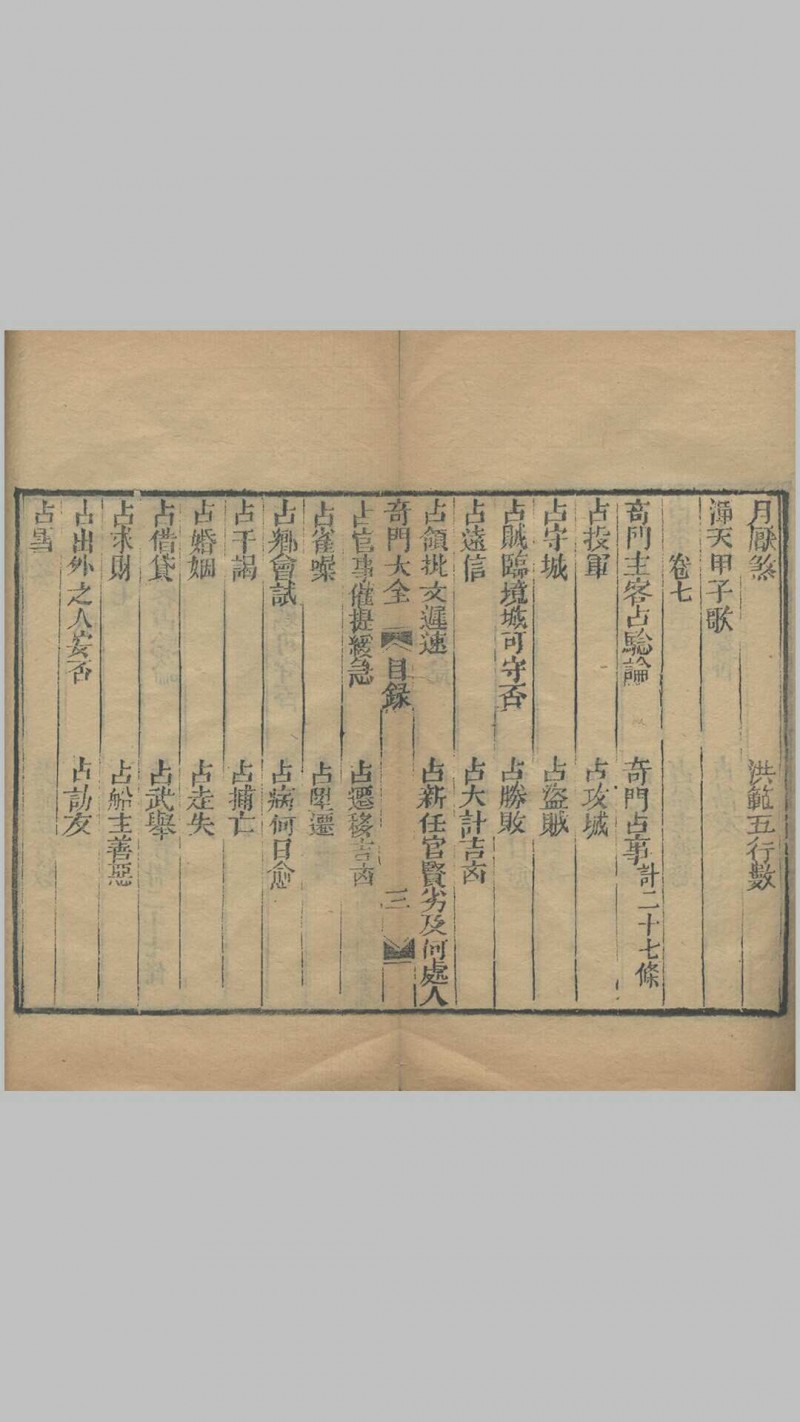 月厭煞　洪範五行數
滿天甲子歌
卷七
奇門主客占驗論　奇門占事計二十七條
占投軍　占攻城
占守城　占盜賊
占賊臨境城可守否　占勝敗
占遠信　占大計吉凶
占領批文遲速　占新任官賢劣及何處人
奇門大全　目錄　三
占官事催提緩急　占遷移吉凶
占雀噪　占陞遷
占鄉會試　占病何日愈
占干謁　占捕亡
占婚姻　占走失
占借貸　占武舉
占求財　占船主善惡
占出外之人安否　占訪友
占雪